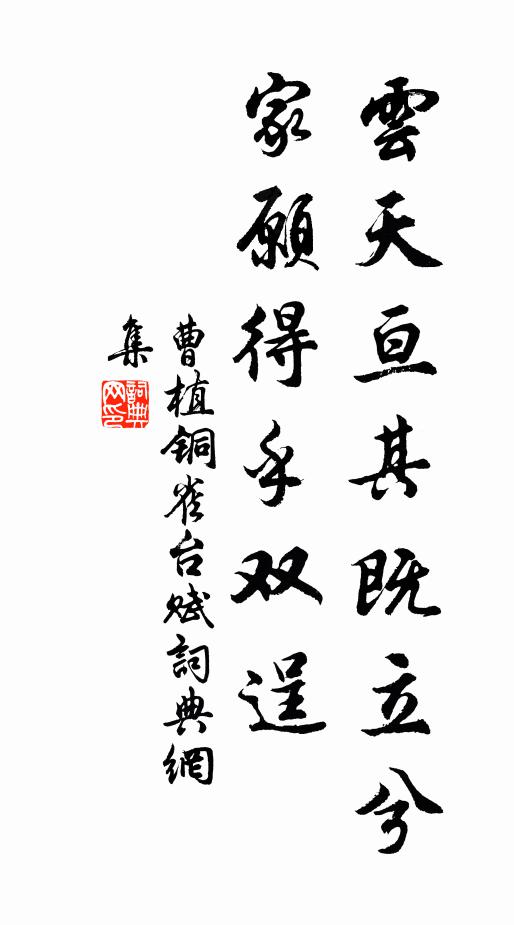 雲天亘其既立兮
家願得乎双逞
曹植铜雀台赋詞典網
集
詞典網印